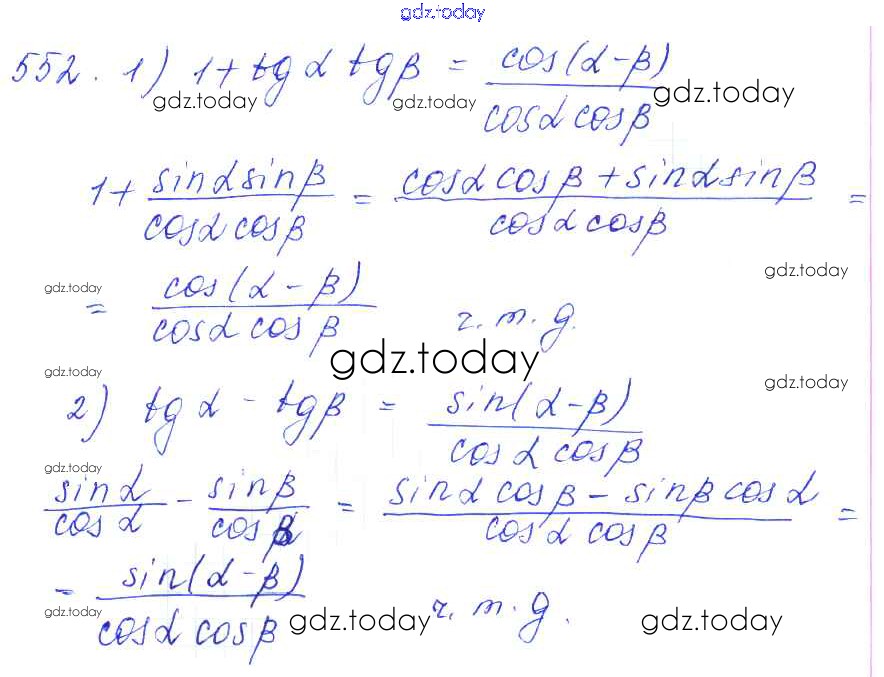 gdz.today
552. 1) 1 + tg α tg β = cos(α-β) / cosα cosβ
gdz.today gdz.today gdz.today
1 + sinα sinβ / cosα cosβ = cosα cosβ + sinα sinβ / cosα cosβ =
gdz.today
gdz.today
= cos(α - β) / cosα cosβ ч. т. д.
gdz.today
gdz.today
gdz.today
2) tg α - tg β = sin(α-β) / cos α cos β
gdz.today
sin α / cos α - sin β / cos β = sin α cos β - sin β cos α / cos α cos β =
gdz.today gdz.today
= sin(α-β) / cosα cosβ ч. т. д.
gdz.today gdz.today gdz.today